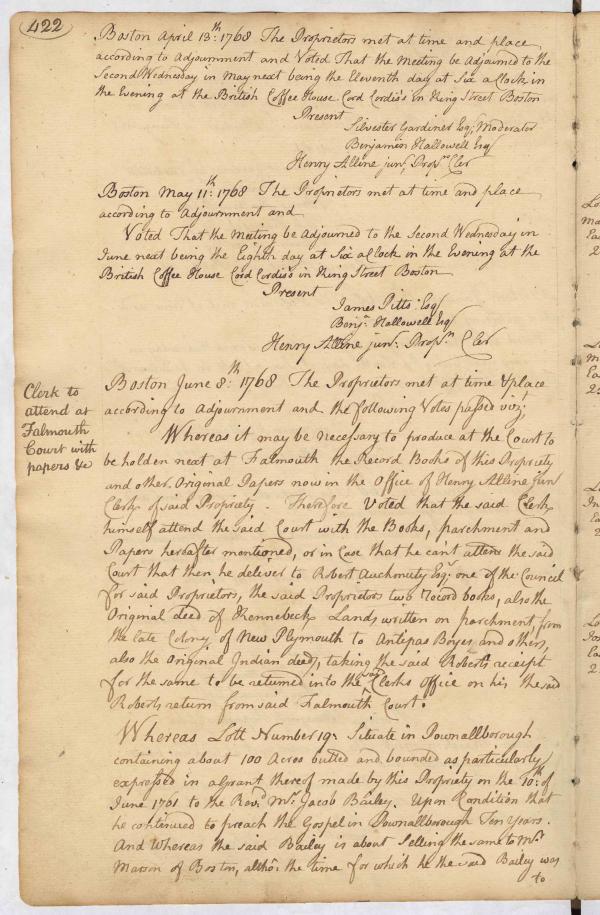 422
Boston April 13th: 1768 The Proprietors met at time and place
according to Adjournment and Voted That the Meeting be Adjourned to the
Second Wednesday in May next being the Eleventh day at Six a Clock in
the Evening at the British Coffee House Cord Cordis's in King Street Boston
Present
Silvester Gardiner Esq; Moderator
Benjamin Hallowell Esq
Henry Alline junr, Propr Cler
Boston May 11th: 1768 The Proprietors met at time and place
according to Adjournment and
Voted That the Meeting be Adjourned to the Second Wednesday in
June next being the Eighth day at Six a Clock in the Evening at the
British Coffee House Cord Cordis's in King Street Boston
Present
James Pitts Esq
Benja Hallowell Esq
Henry Alline junr: Propr Cler
Clerk to
attend at
Falmouth
Court with
papers &c
Boston June 8th: 1768 The Proprietors met at time & place
according to Adjournment and the following Votes passed viz;
Whereas it may be necessary to produce at the Court to
be holden next at Falmouth the Record Books of this Propriety
and other Original Papers now in the Office of Henry Alline junr
Clerk of said Propriety. Therefore Voted that the said Clerk
himself attend the said Court with the Books, parchment and
Papers herafter mentioned, or in Case that he can't attend the said
Court that then he deliver to Robert Auchmuty Esqr: one of the Council
for said Proprietors, the said Proprietors two Record books, also the
Original deed of Kennebeck Lands written on parchment, from
the late Colony of New Plymouth to Antipas Boyes and others,
also the Original Indian deeds, taking the said Roberts receipt
for the same to be returned into the said Clerks Office on his the said
Roberts return from said Falmouth Court.
Whereas Lott Number 19: Situate in Pownallborough
containing about 100 Acres butted and bounded as particularly
expressed in a Grant thereof made by this Propriety on the 10th: of
June 1761 to the Revd Mr. Jacob Bailey. Upon Condition that
he continued to preach the Gospel in Pownallborough Ten Years.
And Whereas the said Bailey is about Selling the same to Mr.
Marson of Boston, altho: the time for which he the said Bailey was
to